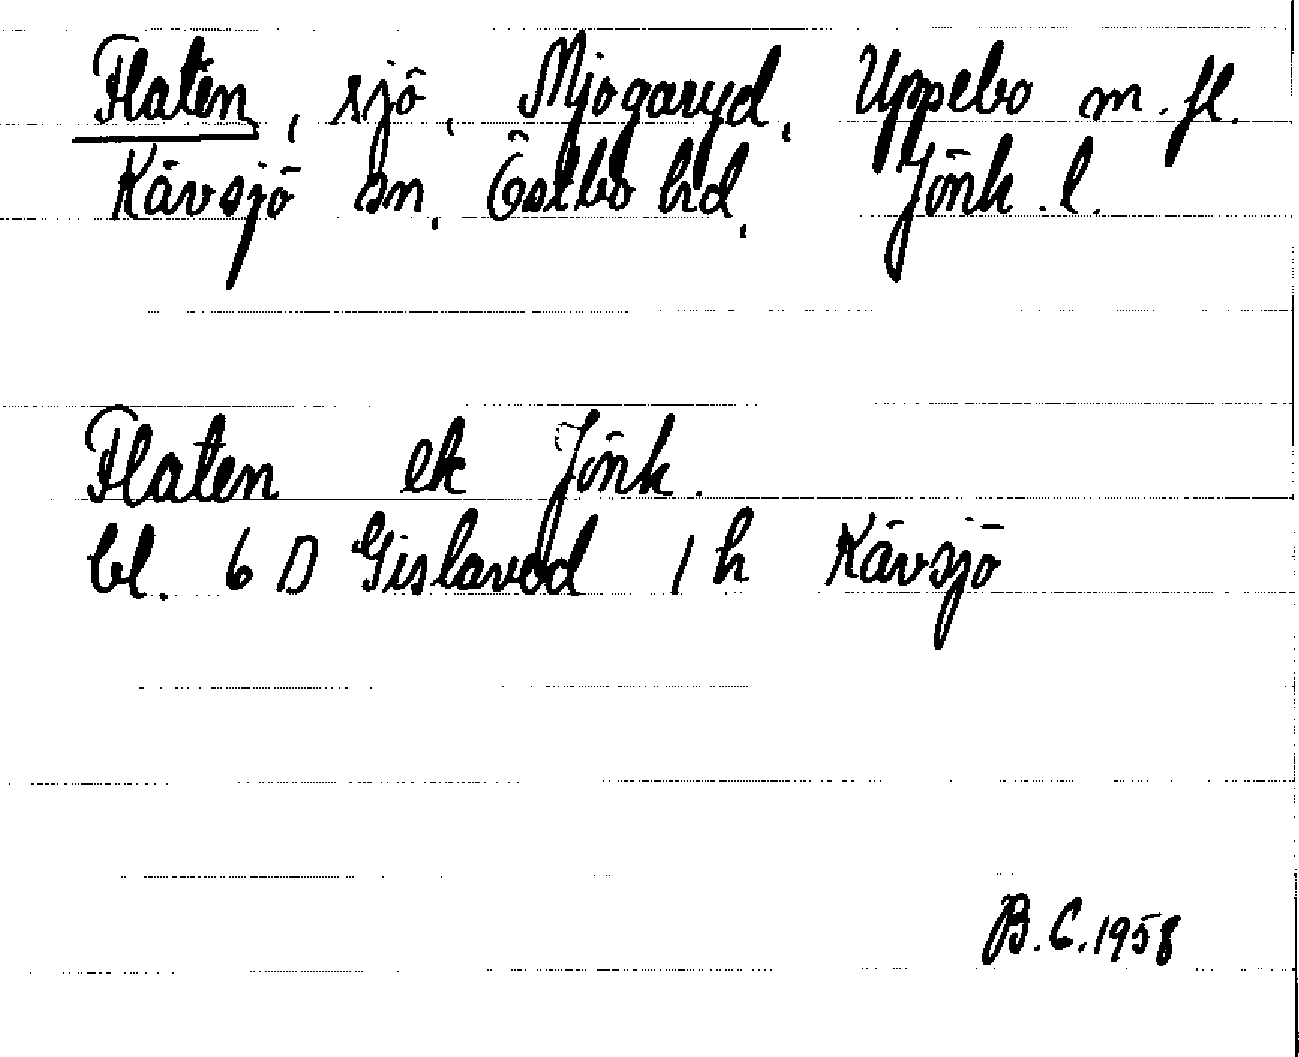 Flaten, sjö, Mjogaryd, Uppebo m.fl.
Kävsjö sn, Östbo hd, Jönk.l.
Flaten ek Jönk.
bl. 6 D Gislaved 1 h Kävsjö
B.C. 1958